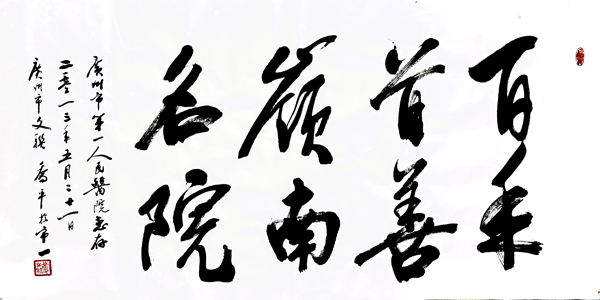 百年
首善
嶺南
名院
廣州市第一人民醫院惠存
二零一三年五月二十一日
廣州市文聯 喬平於市一